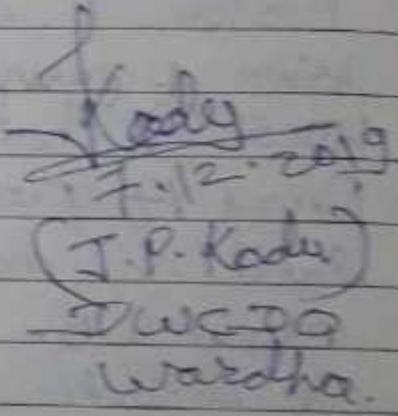 Kady
7.12.2019
(J.P. Kadu)
DWCDO
Wardha.